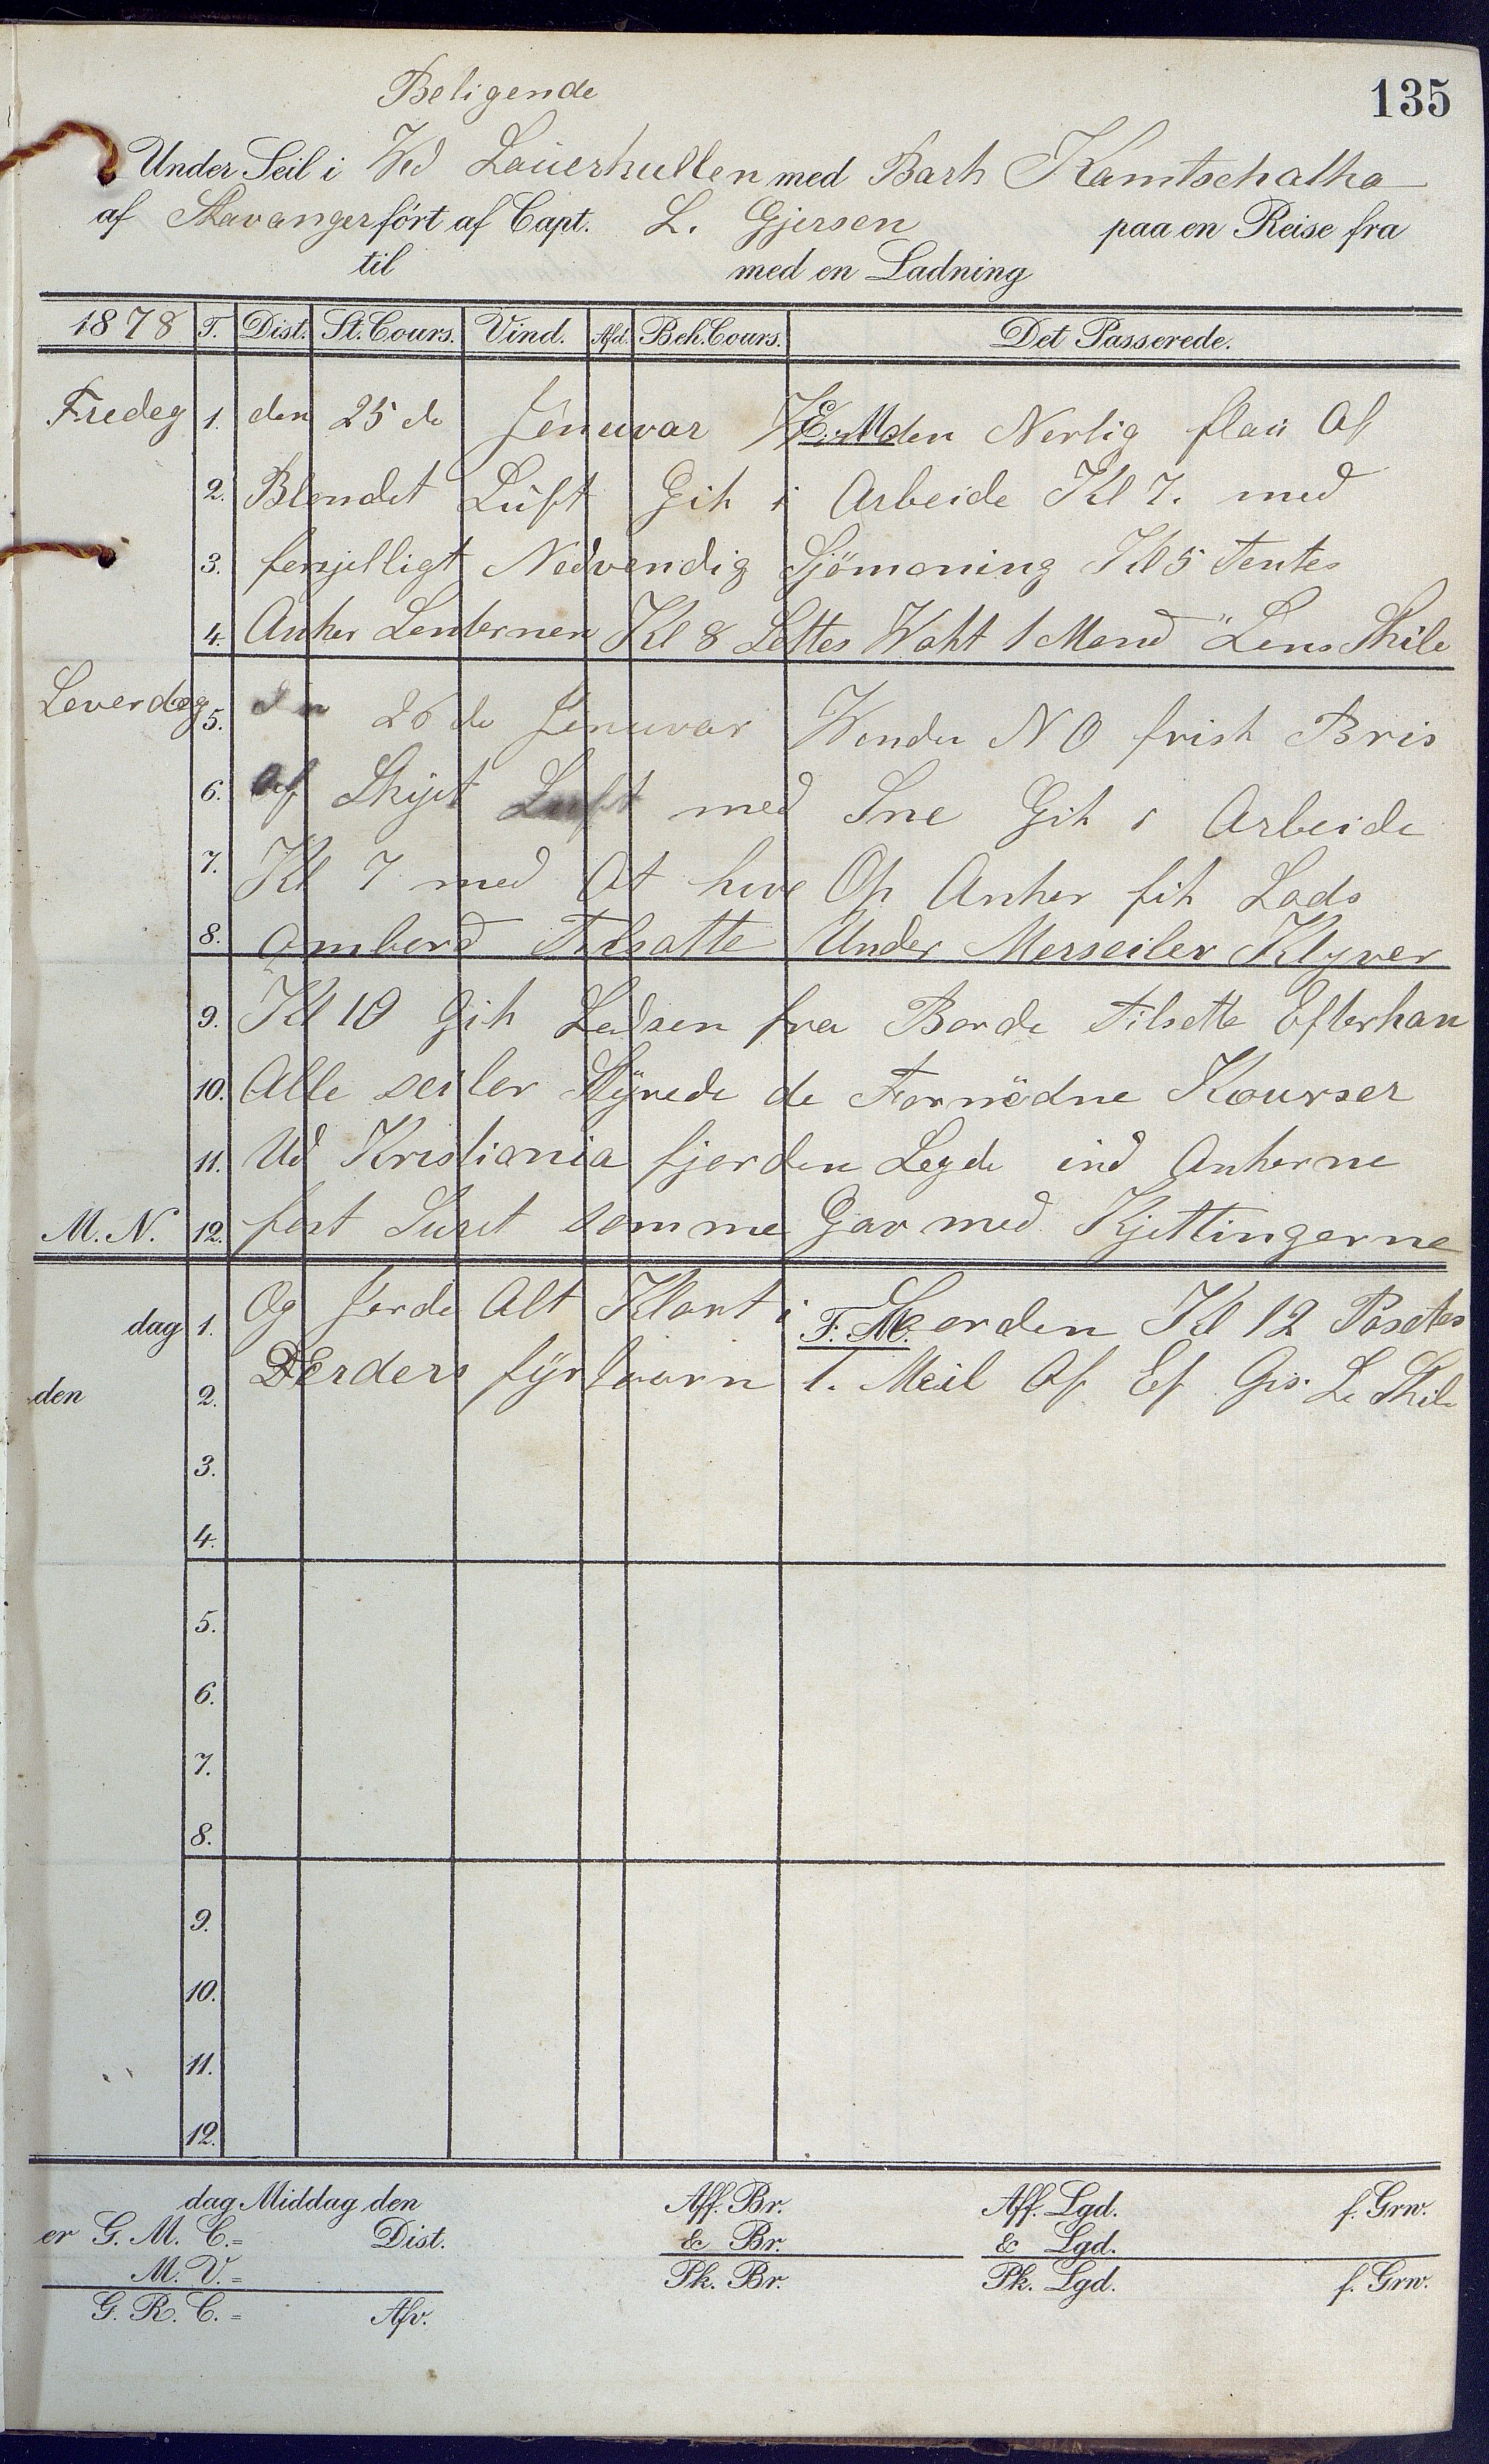 135
Beligende
Under Seil i Ved Lauerkullen med Bark Kamtschatka
af Stavanger ført af Capt. L. Gjersen paa en Reise fra
til med en Ladning
1878 T. Dist. St. Cours. Vind. Afd. Beh. Cours. Det Passerede.
Fredag 1. den 25 de Januvar E. M. den Nerlig flau Af
2. Blandet Luft Gik i Arbeide Kl 7. med
3. forsjelligt Nødvendig Sjömaning Kl 5 Tentes
4. Anker Lanternen Kl 8 Settes Wakt 1 Mand Lens Skib
Laverdag 5. den 26 de Januvar Vinden N O frisk Bris
6. Af Skyet Luft med Sne Gik i Arbeide
7. Kl 7 med At hive Op Anker fik Lods
8. ombord Tilsatte Under Merseiler Klyver
9. Kl 10 Gik Lodsen fra Borde Tilsette Efterhan
10. Alle seiler Styrede de Fornødne Kourser
11. Ud Kristiania fjorden Legde ind Ankerne
M. N. 12. fast Suret somme Gav med Kjettingerne
dag 1. Og Jorde Alt Klart i F. M. Kl 12 Pasetes
den 2. Færders fyrtaarn 1. Meil Af L. Skib
3.
4.
5.
6.
7.
8.
9.
10.
11.
12.
dag Middag den Aff. Br. Aff. Lgd. f. Grw.
er G. M. C. = Dist. & Br. & Lgd.
M. V. = Pk. Br. Pk. Lgd. f. Grw.
G. R. C. = Afv.